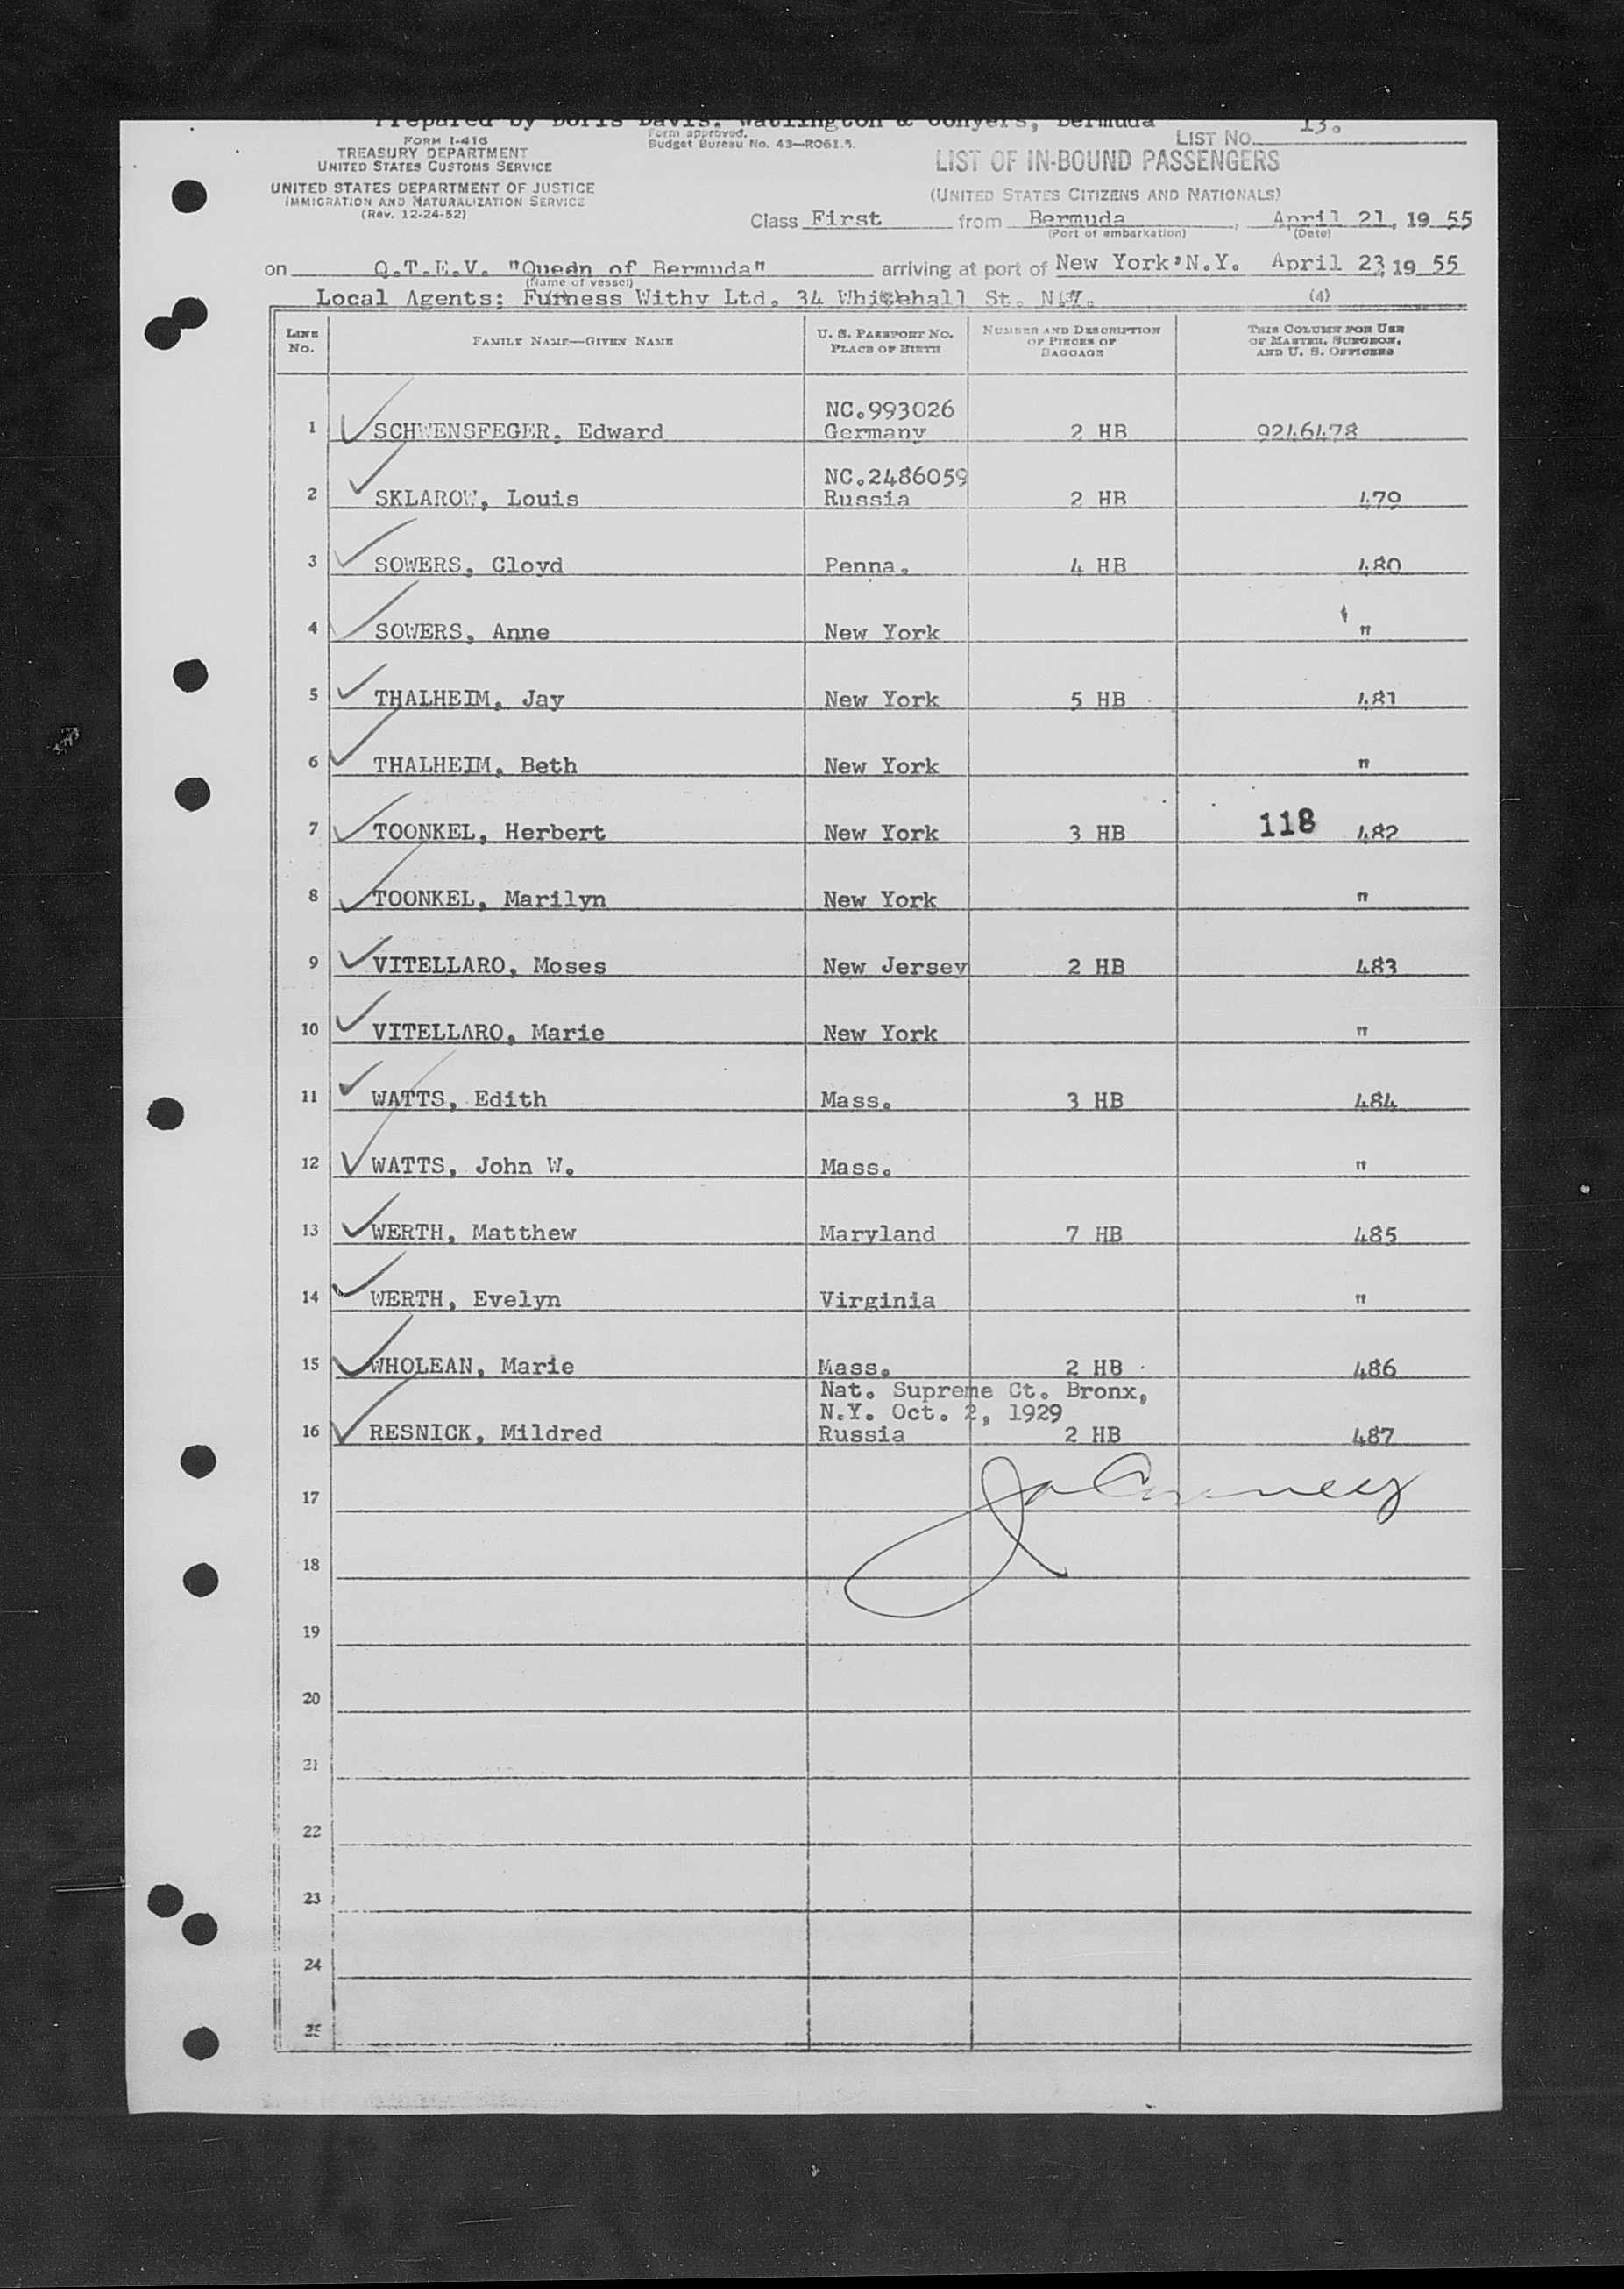 Prepared by Doris Davis, Watlington & Conyers, Bermuda
LIST NO. 13.
FORM I-416
TREASURY DEPARTMENT
UNITED STATES CUSTOMS SERVICE
UNITED STATES DEPARTMENT OF JUSTICE
IMMIGRATION AND NATURALIZATION SERVICE
(Rev. 12-24-52)
Form approved.
Budget Bureau No. 43—R061.5.
LIST OF IN-BOUND PASSENGERS
(UNITED STATES CITIZENS AND NATIONALS)
Class First from Bermuda, April 21, 19 55
(Port of embarkation) (Date)
on Q.T.E.V. "Queen of Bermuda" arriving at port of New York, N.Y. April 23, 19 55
(Name of vessel)
Local Agents: Furness Withy Ltd. 34 Whitehall St. N.Y.
(4)
LINE NO. FAMILY NAME—GIVEN NAME U. S. PASSPORT NO. PLACE OF BIRTH NUMBER AND DESCRIPTION OF PIECES OF BAGGAGE THIS COLUMN FOR USE OF MASTER, SURGEON, AND U. S. OFFICERS
NC.993026
1 SCHWENSFEGER, Edward Germany 2 HB 9246478
NC.2486059
2 SKLAROW, Louis Russia 2 HB 479
3 SOWERS, Cloyd Penna. 4 HB 480
4 SOWERS, Anne New York "
5 THALHEIM, Jay New York 5 HB 481
6 THALHEIM, Beth New York "
7 TOONKEL, Herbert New York 3 HB 118 482
8 TOONKEL, Marilyn New York "
9 VITELLARO, Moses New Jersey 2 HB 483
10 VITELLARO, Marie New York "
11 WATTS, Edith Mass. 3 HB 484
12 WATTS, John W. Mass. "
13 WERTH, Matthew Maryland 7 HB 485
14 WERTH, Evelyn Virginia "
15 WHOLEAN, Marie Mass. 2 HB 486
Nat. Supreme Ct. Bronx,
N.Y. Oct. 2, 1929
16 RESNICK, Mildred Russia 2 HB 487
17
18
19
20
21
22
23
24
25